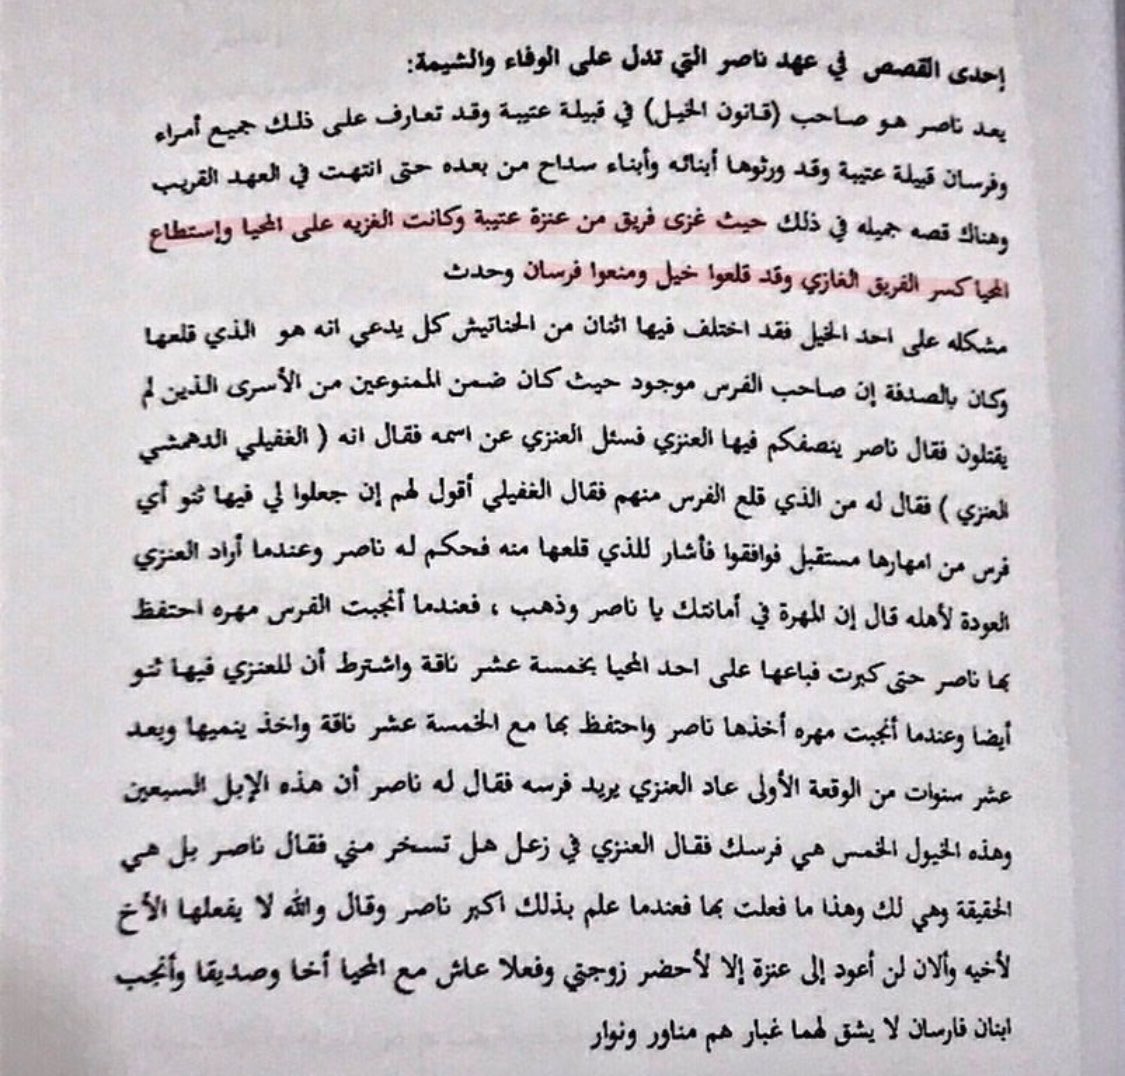 إحدى القصص في عهد ناصر التي تدل على الوفاء والشيمة:
يعد ناصر هو صاحب (قانون الخيل) في قبيلة عتيبة وقد تعارف على ذلك جميع أمراء
وفرسان قبيلة عتيبة وقد ورثوها أبنائه وأبناء سداح من بعده حتى انتهت في العهد القريب
وهناك قصه جميله في ذلك حيث غزى فريق من عنزة عتيبة وكانت الغزيه على المحيا وإستطاع
المحيا كسر الفريق الغازي وقد قلعوا خيل ومنعوا فرسان وحدث
مشكله على احد الخيل فقد اختلف فيها اثنان من الحناتيش كل يدعي انه هو الذي قلعها
وكان بالصدفة إن صاحب الفرس موجود حيث كان ضمن الممنوعين من الأسرى الذين لم
يقتلون فقال ناصر ينصفكم فيها العنزي فسئل العنزي عن اسمه فقال انه ( الغفيلي الدهمشي
العنزي ) فقال له من الذي قلع الفرس منهم فقال الغفيلي أقول لهم إن جعلوا لي فيها ثنو أي
فرس من امهارها مستقبل فوافقوا فأشار للذي قلعها منه فحكم له ناصر وعندما أراد العنزي
العودة لأهله قال إن المهرة في أمانتك يا ناصر وذهب ، فعندما أنجبت الفرس مهره احتفظ
بها ناصر حتى كبرت فباعها على احد المحيا بخمسة عشر ناقة واشترط أن للعنزي فيها ثنو
أيضا وعندما أنجبت مهره أخذها ناصر واحتفظ بها مع الخمسة عشر ناقة واخذ ينميها وبعد
عشر سنوات من الوقعة الأولى عاد العنزي يريد فرسه فقال له ناصر أن هذه الإبل السبعين
وهذه الخيول الخمس هي فرسك فقال العنزي في زعل هل تسخر مني فقال ناصر بل هي
الحقيقة وهي لك وهذا ما فعلت بها فعندما علم بذلك اكبر ناصر وقال والله لا يفعلها الأخ
لأخيه وألان لن أعود إلى عنزة إلا لأحضر زوجتي وفعلا عاش مع المحيا أخا وصديقا وأنجب
ابنان فارسان لا يشق لهما غبار هم مناور ونوار